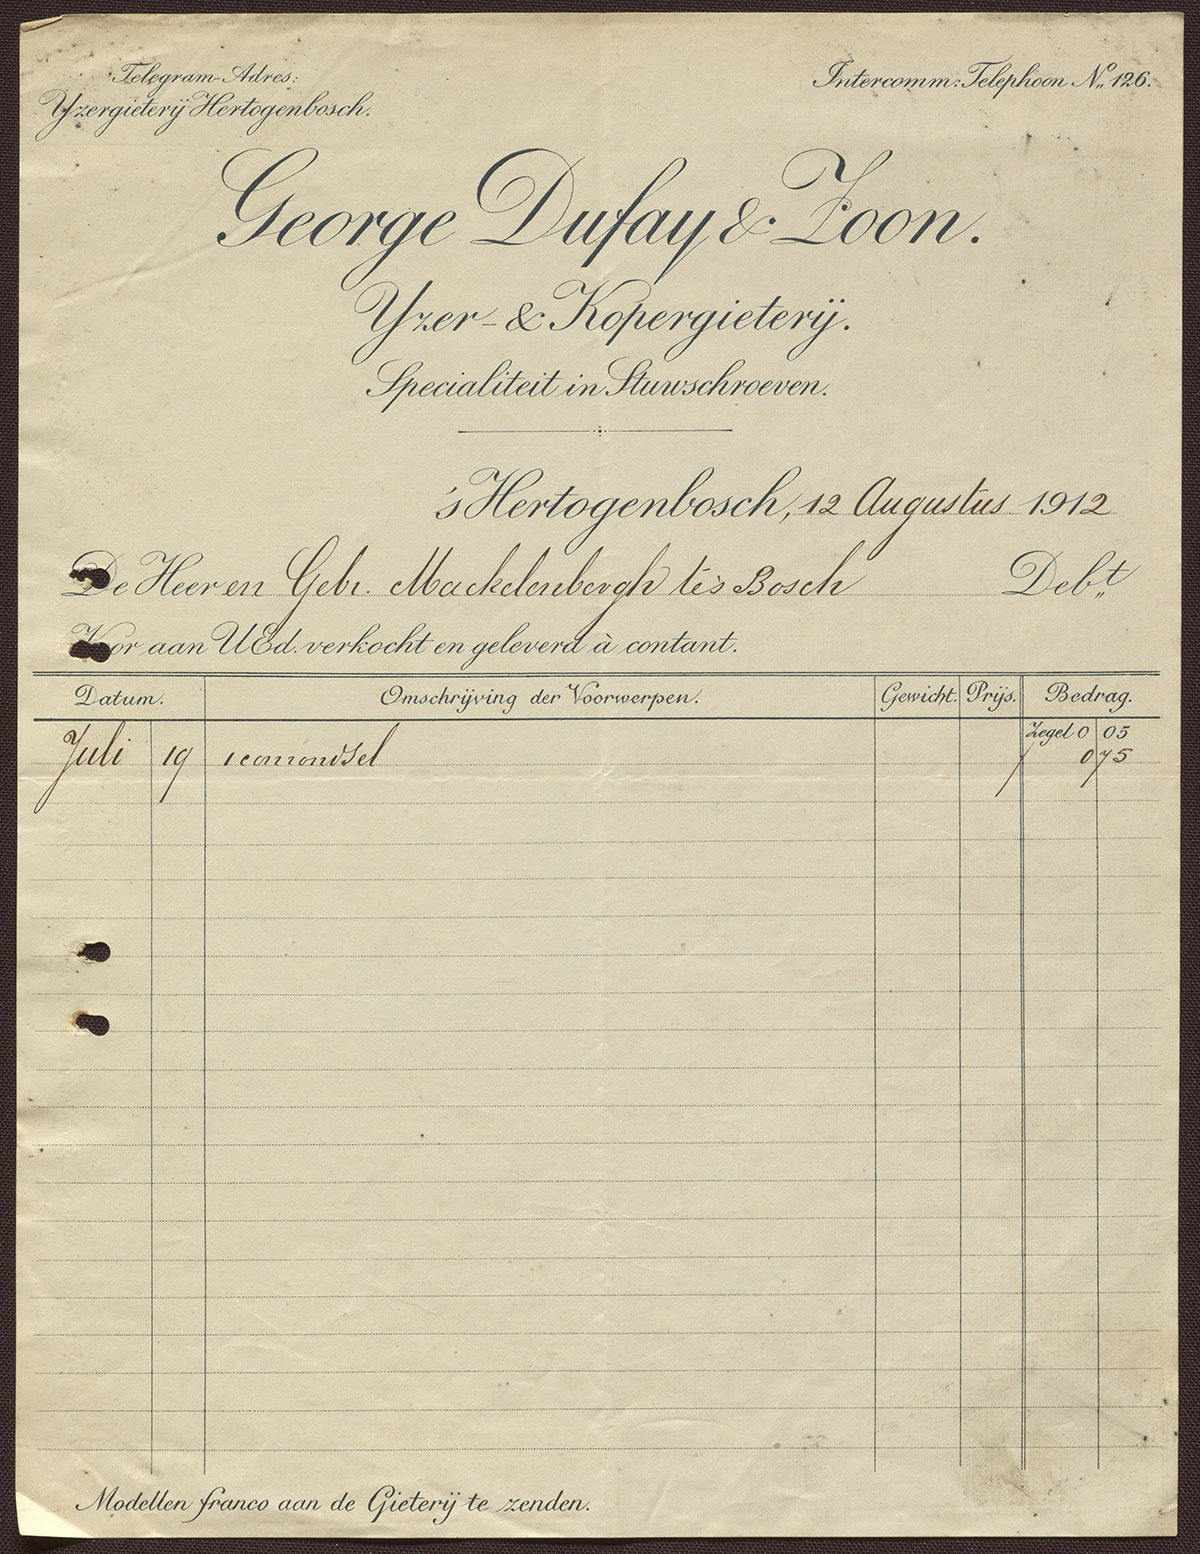 Telegram-Adres:
Yzergieterij Hertogenbosch.
Intercomm: Telephoon No. 126.
George Dufay & Zoon.
Yzer- & Kopergieterij.
Specialiteit in Stuwschroeven.
's Hertogenbosch, 12 Augustus 1912
De Heeren Gebr. Mackelenbergh te 's Bosch Debt.
Voor aan UEd. verkocht en geleverd à contant.
Datum. Omschrijving der Voorwerpen. Gewicht. Prijs. Bedrag.
Zegel 0 05
Juli 19 0 75
Modellen franco aan de Gieterij te zenden.